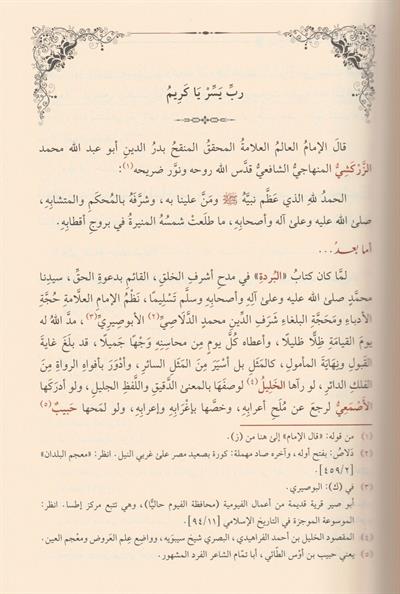 ربِّ يَسِّرْ يَا كَرِيمُ
قالَ الإمامُ العالمُ العلامةُ المحققُ المنقحُ بدرُ الدينِ أبو عبد الله محمد
الزَّرْكَشِيُّ المنهاجيُّ الشافعيُّ قدَّس الله روحه ونوَّر ضريحه(١):
الحمدُ للهِ الذي عَظَّم نبيَّهُ ﷺ ومَنَّ علينا به، وشرَّفَهُ بالمُحكَمِ والمتشابِهِ،
صلى الله عليه وعلى آله وأصحابِهِ، ما طلَعتْ شمسُهُ المنيرةُ في بروجِ أقطابِهِ.
أما بعدُ...
لمَّا كان كتابُ «البُردةِ» في مدحِ أشرفِ الخلقِ، القائمِ بدعوةِ الحقِّ، سيدِنا
محمَّدٍ صلى الله عليه وعلى آلِهِ وأصحابِهِ وسلَّم تَسْلِيمًا، نَظْمُ الإمامِ العلامةِ حُجَّةِ
الأدباءِ ومَحَجَّةِ البلغاءِ شَرَفِ الدِّينِ محمدٍ الدَّلَاصِيِّ(٢) الأبوصِيرِيِّ(٣)، مدَّ اللهُ له
يومَ القيامَةِ ظِلًّا ظليلًا، وأعطاه كلَّ يومٍ مِن محاسِنِهِ وجْهًا جَميلًا، قد بلَغَ غايةَ
القَبولِ ونِهَايَةَ المأمولِ، كالمَثَلِ بل أَسْيَرَ مِنَ المَثَلِ السائرِ، وأدْوَرَ بأفواهِ الرواةِ مِنَ
الفلكِ الدائرِ، لو رآها الخَلِيلُ(٤) لوصفَهَا بالمعنى الدَّقيقِ واللَّفظِ الجليلِ، ولو أدرَكَها
الأَصْمَعِيُّ لرجعَ عن مُلَحِ أعرابِهِ، وخصَّها بإغْرَابِهِ وإعرابِهِ، ولو لمَحَها حَبيبٌ(٥)
(١) من قوله: «قال الإمام» إلى هنا من (ز).
(٢) دَلاصُ: بفتح أوله، وآخره صاد مهملة: كورة بصعيد مصر على غربي النيل. انظر: «معجم البلدان»
[٤٥٩/٢].
(٣) في (ك): البوصيري.
أبو صير قرية قديمة من أعمال الفيومية (محافظة الفيوم حاليًّا)، وهي تتبع مركز إطسا. انظر:
الموسوعة الموجزة في التاريخ الإسلامي [٩٤/١١].
(٤) المقصود الخليل بن أحمد الفراهيدي، البصري شيخ سيبويه، وواضِع عِلم العَروض ومعْجم العين.
(٥) يعني حبيب بن أوْس الطَّائي، أبا تمَّام الشاعر الفرد المشهور.